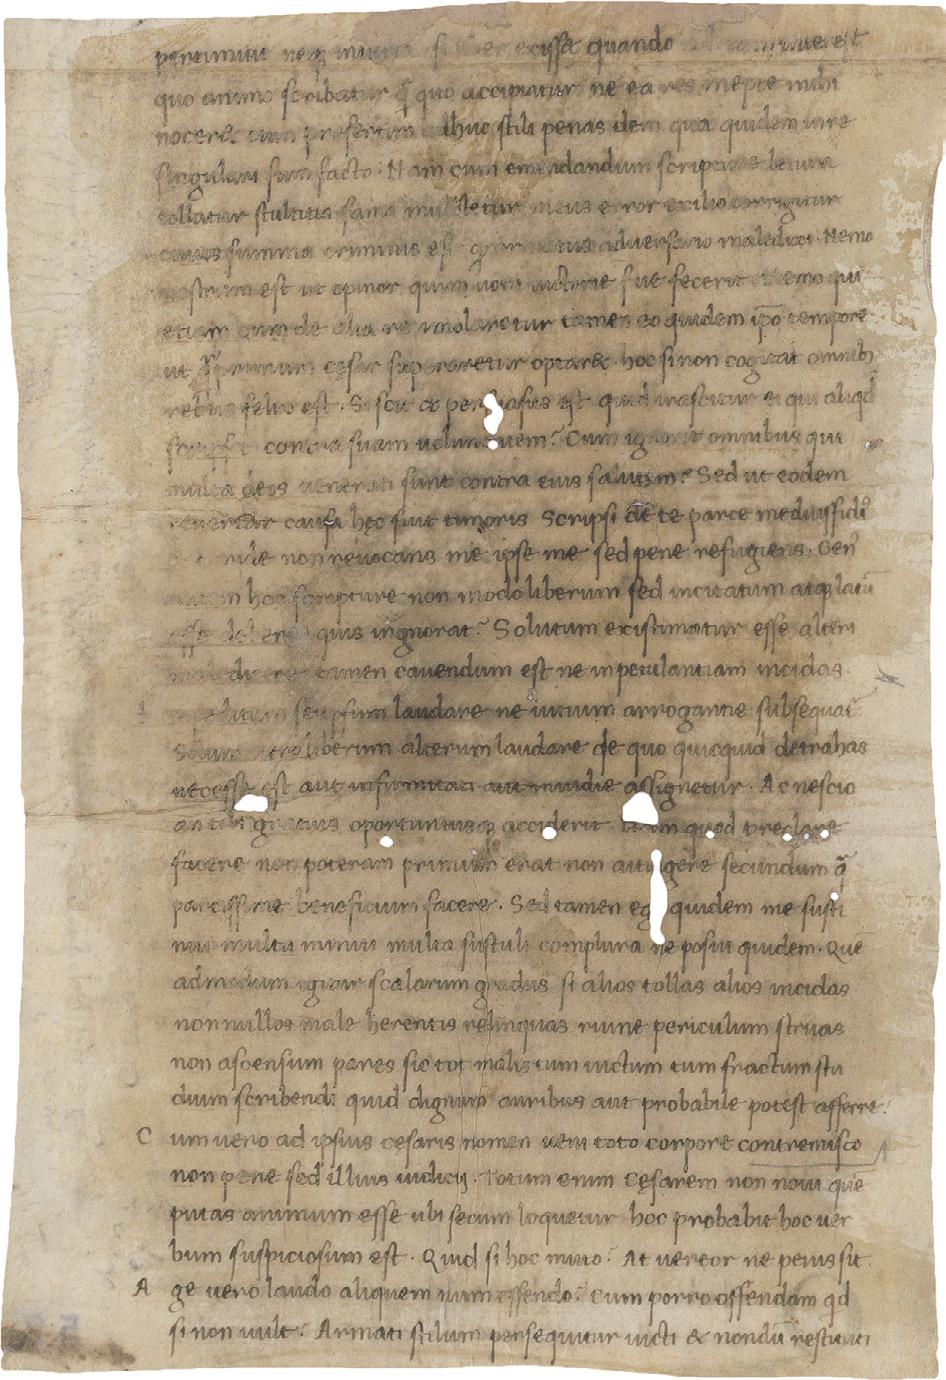 pertimui neq; iniuria si liber exisset quando est
quo animo scribatur q̄ quo accipiatur ne ea res inepte mihi
noceret cum presertim adhuc stili penas dem qua quidem in re
singulari sum facto. Nam cum emendandum scripture litura
tollatur stultitia fama multetur meus error exilio corrigitur
cuius summa criminis est armatus adversario maledixi. Nemo
nostrum est ut opinor quin vota victorie sue fecerit. Nemo qui
etiam cum de alia re inmolaretur tamen eo quidem ip̄o tempore
ut primum cęsar superaretur optaret hoc si non cogitat omnib;
rebus felix est. Si scit & persuasus est quid irascitur ei qui aliqd̄
scripsit contra suam voluntatem? Cum ignorit omnibus qui
multa deos venerati sunt contra eius salutem? Sed ut eodem
revertar causa hęc fuit timoris Scripsi de te parce mediusfidi⁹
non revocans me ipse me sed pene refugiens. Gen⁹
autem hoc scripture non modo liberum sed incitatum atq; latū
esse debere quis ingnorat? Solutum existimatur esse alteri
maledicere tamen cavendum est ne in petulantiam incidas
seipsum laudare ne vitium arrogantie subsequat̄
Solum vero liberum alterum laudare de quo quicquid detrahas
necesse est aut infirmitati aut invidie assignetur. Ac nescio
an tibi gratius oportuniusq; acciderit. Nam quod preclare
facere non poteram primum erat non attigere secundum q̄
parcissime beneficium facere. Sed tamen ego quidem me susti
nui multa minui multa sustuli complura ne posui quidem. Quē
admodum igitur scalarum gradus si alios tollas alios incidas
nonnullos male herentis relinquas ruine periculum struas
non ascensum pares sic tot malis tum victum tum fractum stu
dium scribendi quid dignum auribus aut probabile potest afferre?
C um vero ad ipsius cęsaris nomen veni toto corpore contremisco
non pene sed illius iudicij. Totum enim Cęsarem non novi quē
putas animum esse ubi secum loquetur hoc probabit hoc ver
bum suspiciosum est. Quid si hoc muto? At vereor ne peius sit.
A ge vero laudo aliquem num offendo? Cum porro offendam qd
si non vult? Armati stilum persequitur victi & nondū restituti